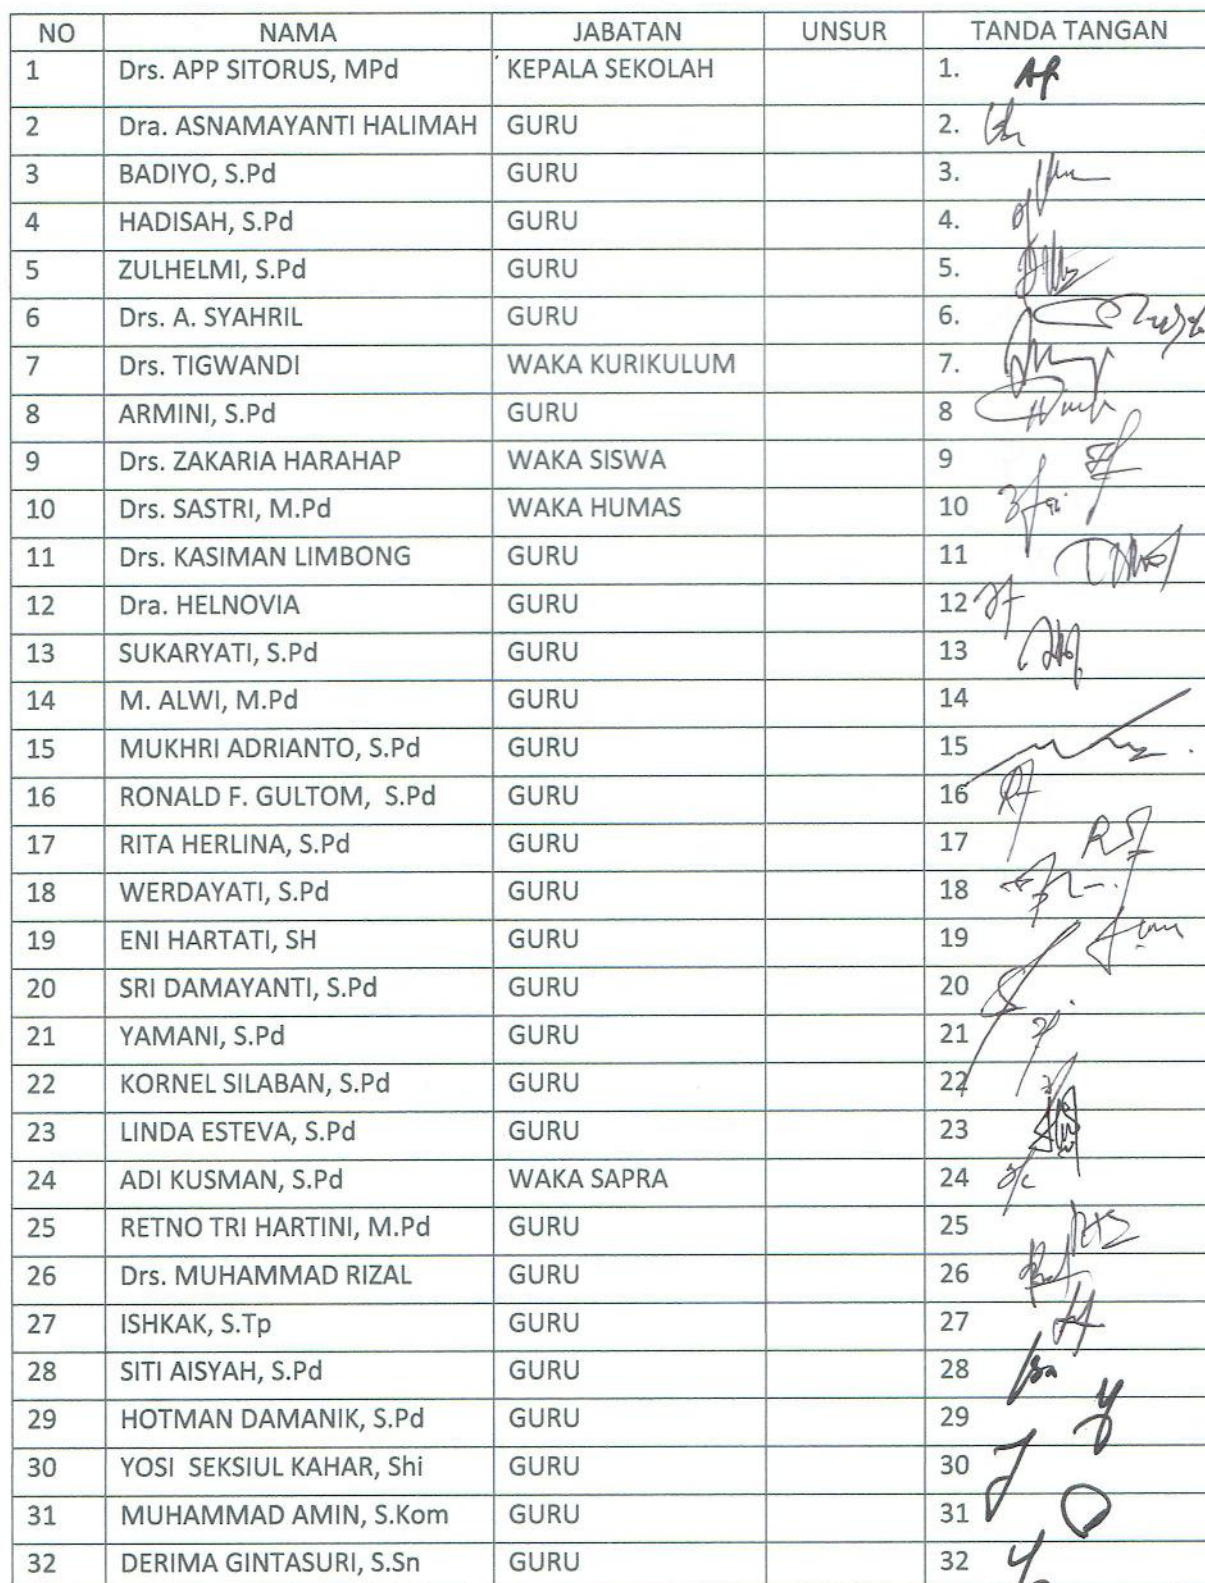 NO NAMA JABATAN UNSUR TANDA TANGAN
1 Drs. APP SITORUS, MPd KEPALA SEKOLAH 1.
2 Dra. ASNAMAYANTI HALIMAH GURU 2.
3 BADIYO, S.Pd GURU 3.
4 HADISAH, S.Pd GURU 4.
5 ZULHELMI, S.Pd GURU 5.
6 Drs. A. SYAHRIL GURU 6.
7 Drs. TIGWANDI WAKA KURIKULUM 7.
8 ARMINI, S.Pd GURU 8
9 Drs. ZAKARIA HARAHAP WAKA SISWA 9
10 Drs. SASTRI, M.Pd WAKA HUMAS 10
11 Drs. KASIMAN LIMBONG GURU 11
12 Dra. HELNOVIA GURU 12
13 SUKARYATI, S.Pd GURU 13
14 M. ALWI, M.Pd GURU 14
15 MUKHRI ADRIANTO, S.Pd GURU 15
16 RONALD F. GULTOM, S.Pd GURU 16
17 RITA HERLINA, S.Pd GURU 17
18 WERDAYATI, S.Pd GURU 18
19 ENI HARTATI, SH GURU 19
20 SRI DAMAYANTI, S.Pd GURU 20
21 YAMANI, S.Pd GURU 21
22 KORNEL SILABAN, S.Pd GURU 22
23 LINDA ESTEVA, S.Pd GURU 23
24 ADI KUSMAN, S.Pd WAKA SAPRA 24
25 RETNO TRI HARTINI, M.Pd GURU 25
26 Drs. MUHAMMAD RIZAL GURU 26
27 ISHKAK, S.Tp GURU 27
28 SITI AISYAH, S.Pd GURU 28
29 HOTMAN DAMANIK, S.Pd GURU 29
30 YOSI SEKSIUL KAHAR, Shi GURU 30
31 MUHAMMAD AMIN, S.Kom GURU 31
32 DERIMA GINTASURI, S.Sn GURU 32